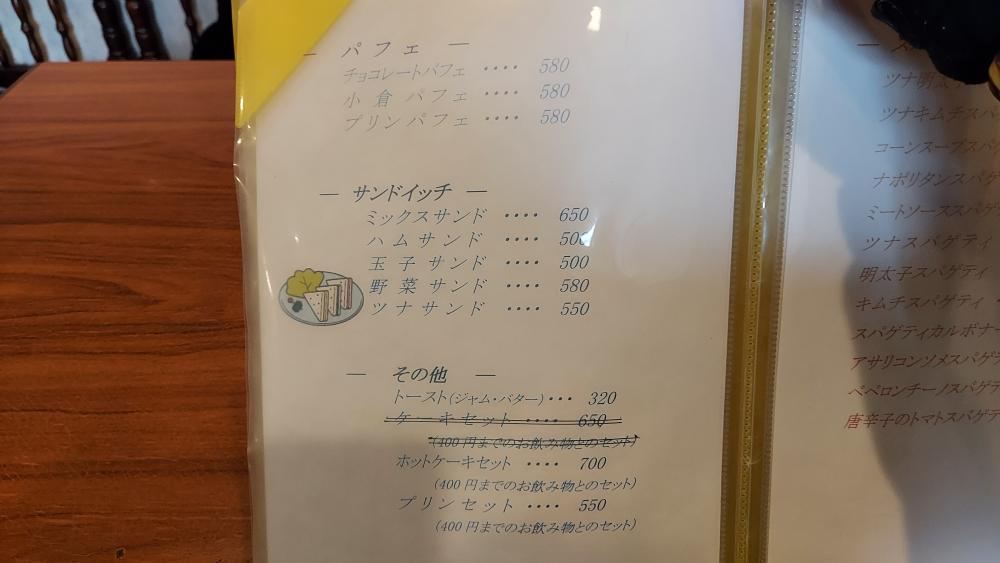 ― パフェ ―
チョコレートパフェ ････ 580
小倉パフェ ････ 580
プリンパフェ ････ 580
― サンドイッチ ―
ミックスサンド ････ 650
ハムサンド ････ 500
玉子サンド ････ 500
野菜サンド ････ 580
ツナサンド ････ 550
― その他 ―
トースト(ジャム・バター)･･･ 320
ケーキセット ････ 650
(400円までのお飲み物とのセット)
ホットケーキセット ････ 700
(400円までのお飲み物とのセット)
プリンセット ････ 550
(400円までのお飲み物とのセット)
ツナ明太
ツナキムチスパ
コーンスープスパ
ナポリタンスパゲ
ミートソーススパゲ
ツナスパゲティ
明太子スパゲティ
キムチスパゲティ
スパゲティカルボナー
アサリコンソメスパゲテ
ペペロンチーノスパゲテ
唐辛子のトマトスパゲテ